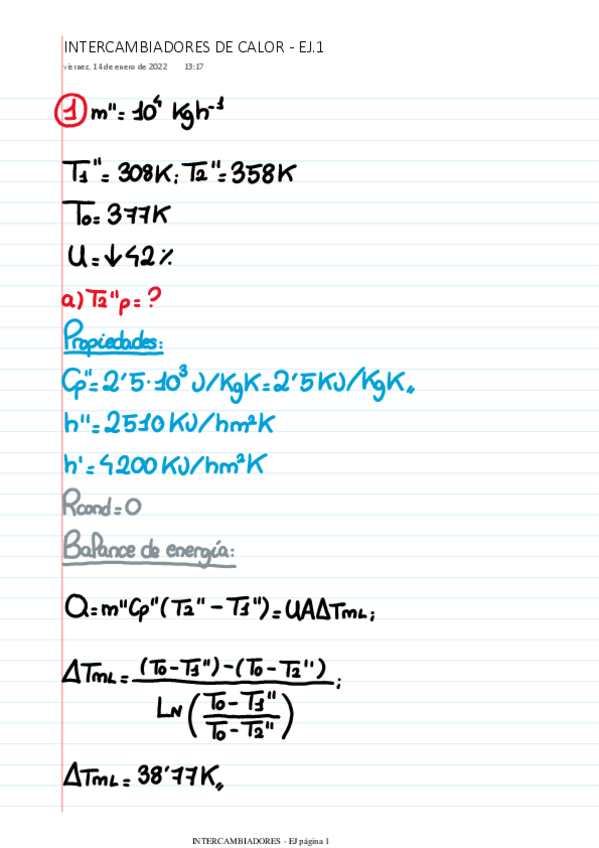 INTERCAMBIADORES DE CALOR - EJ.1
viernes, 14 de enero de 2022 13:17
1 m''= 10⁴ Kgh⁻¹
T1''= 308K; T2''= 358K
T0= 377K
U=↓42%
a) T2''p=?
Propiedades:
Cp''= 2'5·10³ J/KgK= 2'5KJ/KgK,,
h''= 2510 KJ/hm²K
h'= 4200 KJ/hm²K
Rcond=0
Balance de energía:
Q= m''Cp''(T2''-T1'')=UAΔTmL;
ΔTmL= (T0-T1'')-(T0-T2'') ;
LN (T0-T1''
T0-T2'')
ΔTmL= 38'77K,,
INTERCAMBIADORES - EJ página 1